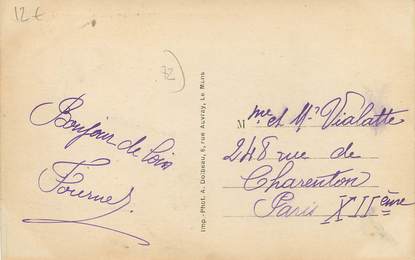 12€
72
Bonjour de loin
Imp.-Phot. A. Dolbeau, 6, rue Auvray, Le Mans
Mme et Mr Vialatte
248 rue de
Charenton
Paris XIIème